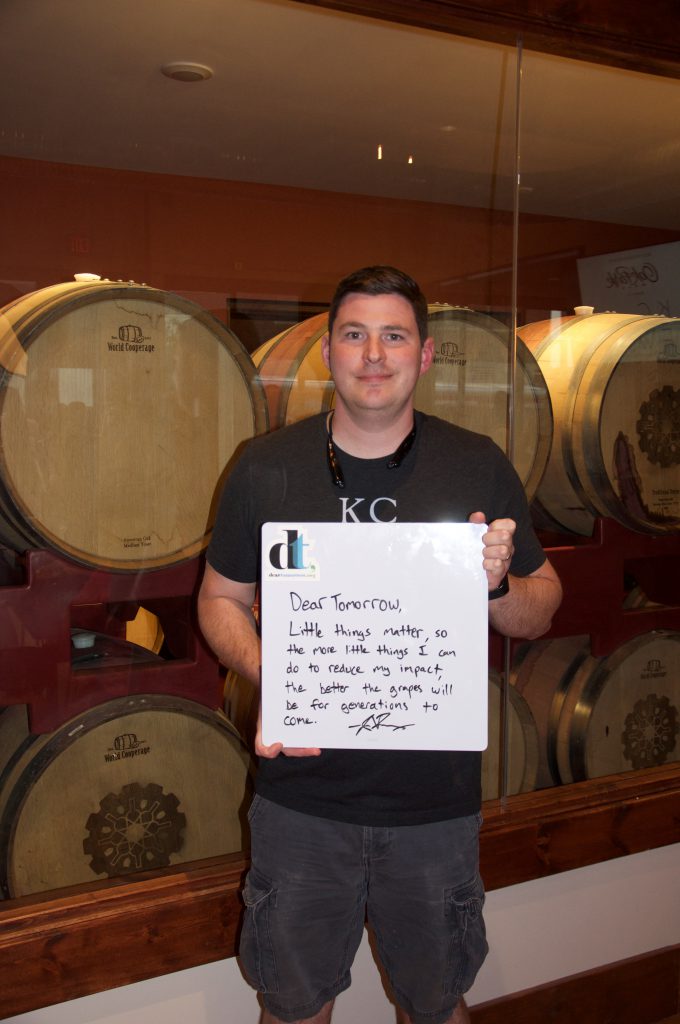 World Cooperage
World Cooperage
KC
dt.
deartomorrow.org
Dear Tomorrow,
Little things matter, so
the more little things I can
do to reduce my impact,
the better the grapes will
be for generations to
come.
World Cooperage